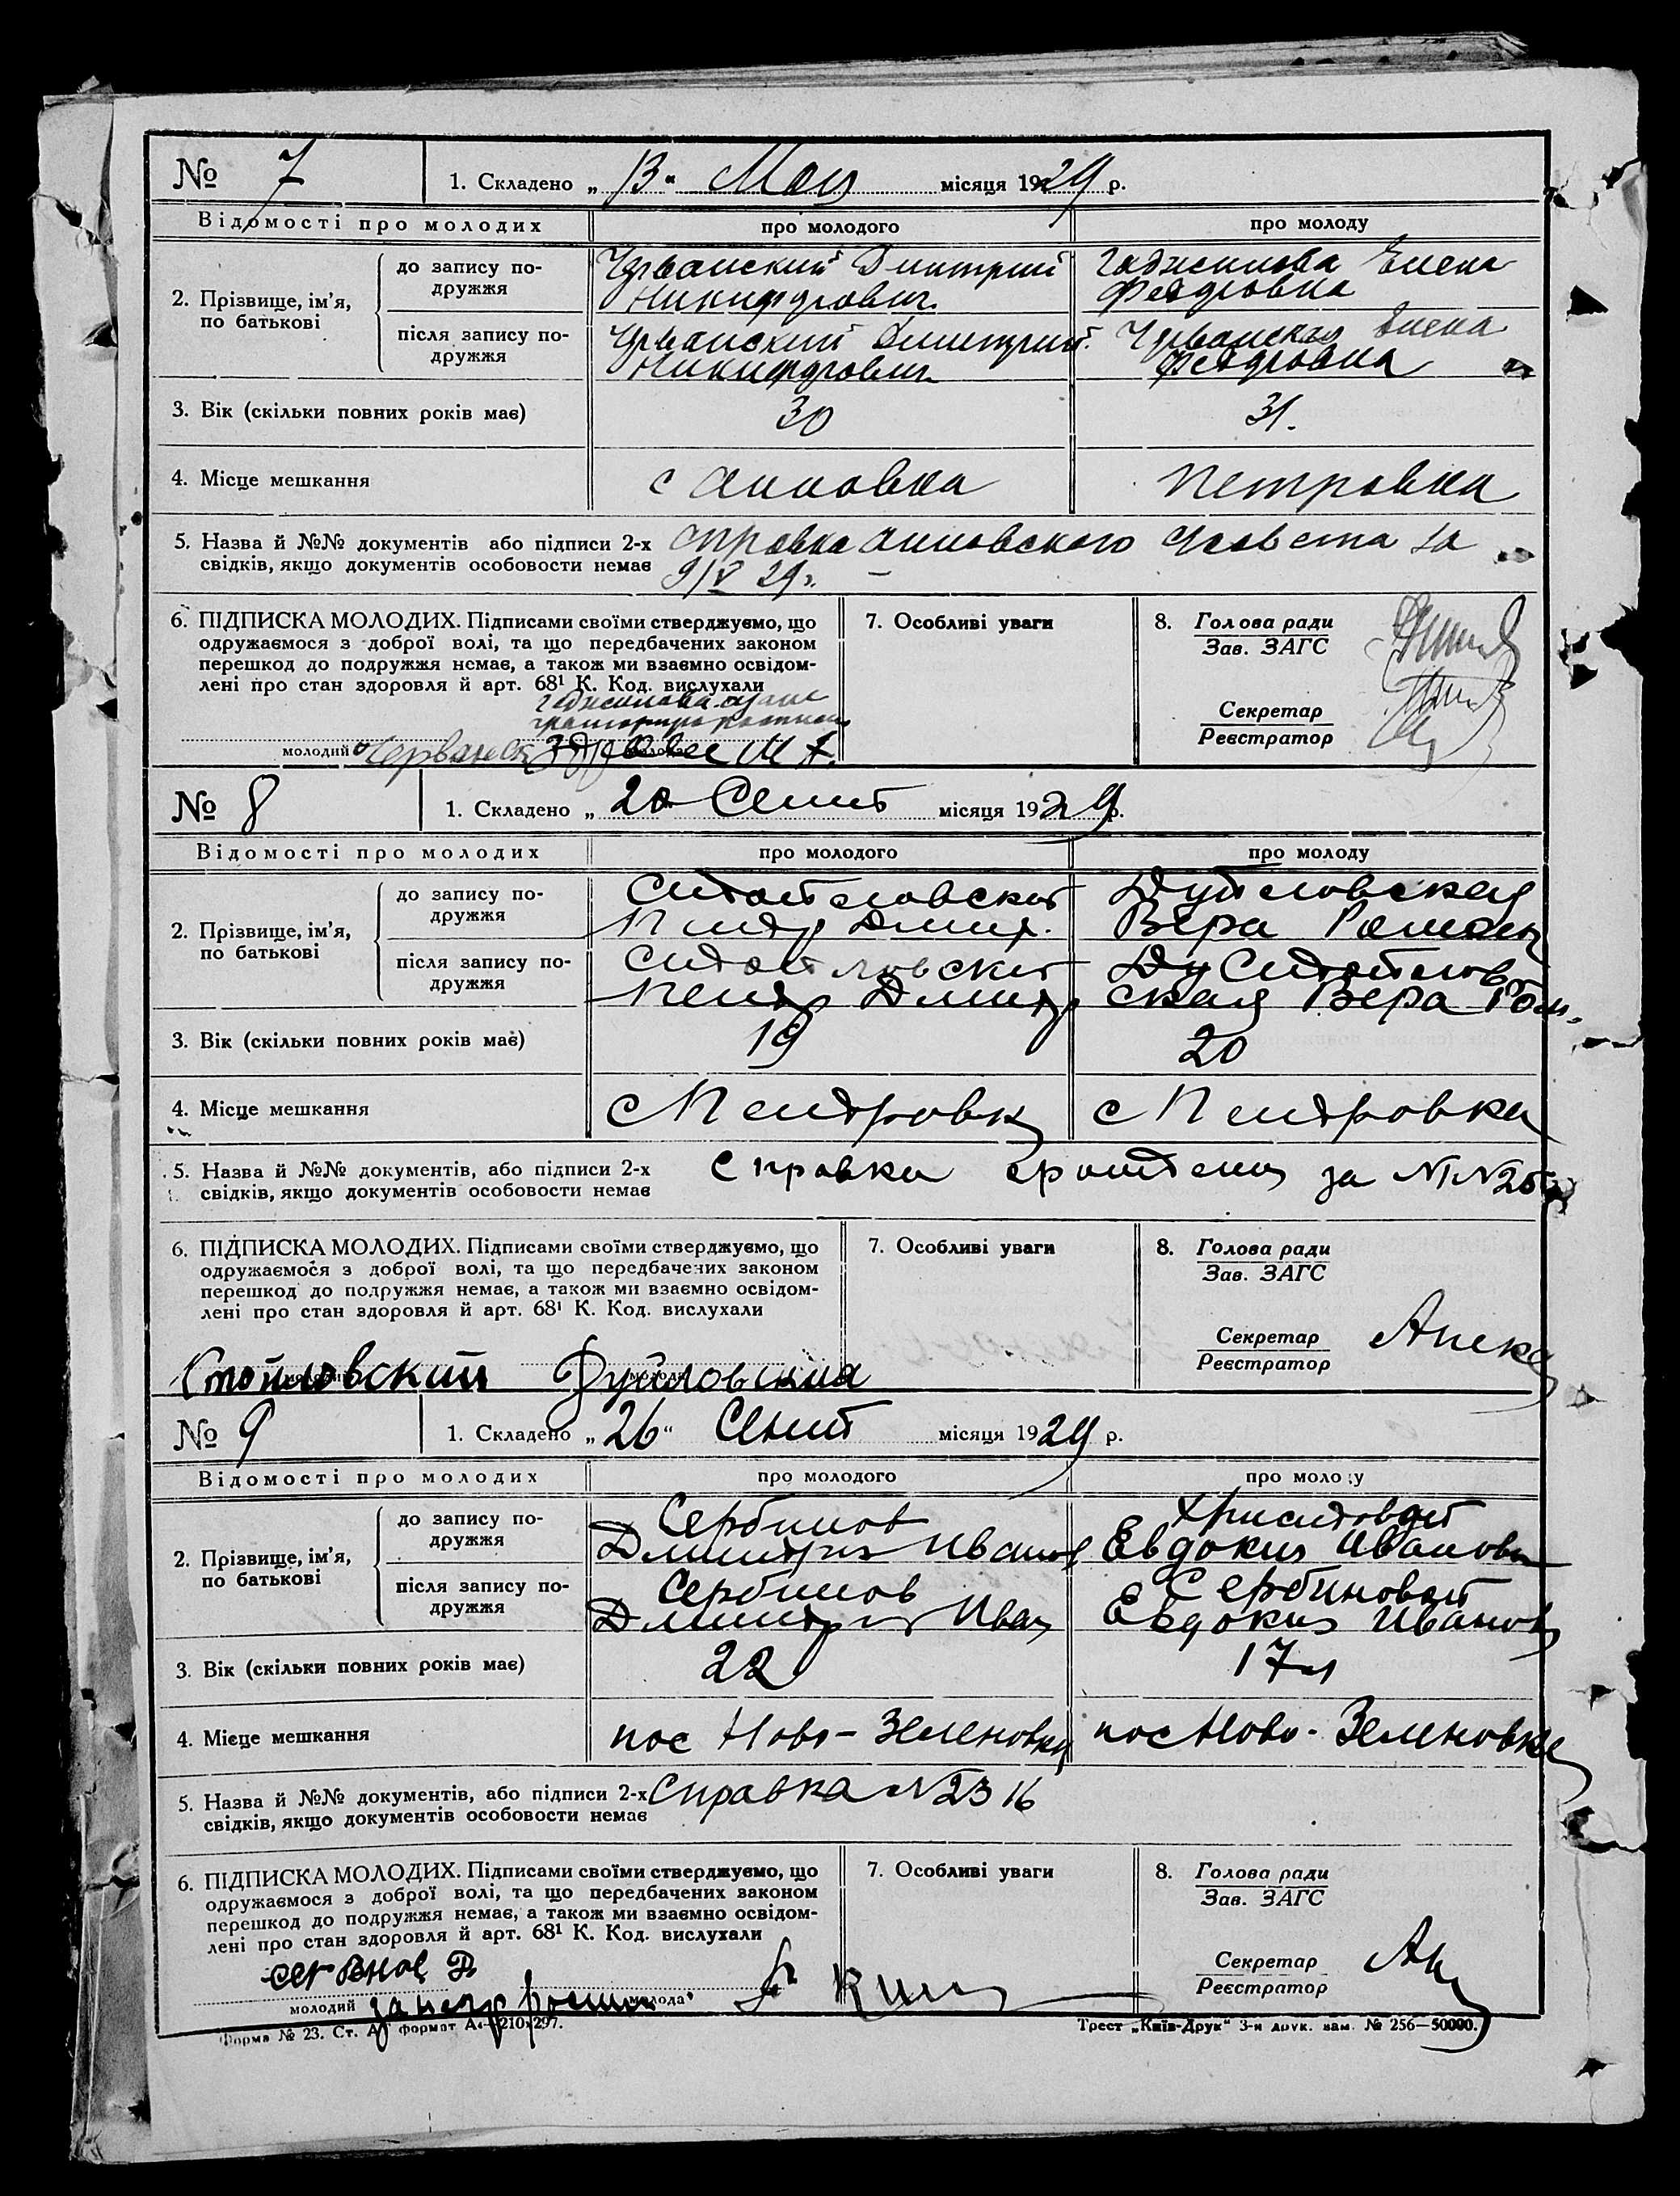 № 7 1. Складено „ 13 " Мая місяця 1929 р.
Відомості про молодих про молодого про молоду
2. Прізвище, ім'я, по батькові
до запису подружжя
Черванский Дмитрий
Никифорович.
Елена
Феодровна
після запису подружжя
Черванский Дмитрий
Никифорович
Черванская Елена
Феодровна
3. Вік (скільки повних років має) 30 31.
4. Місце мешкання с Анновка Петровка
5. Назва й №№ документів або підписи 2-х Справка Анновского за
свідків, якщо документів особовости немає 9/V 29г. –
6. ПІДПИСКА МОЛОДИХ. Підписами своїми стверджуємо, що
одружаємося з доброї волі, та що передбачених законом
перешкод до подружжя немає, а також ми взаємно освідом-
лені про стан здоровля й арт. 68¹ К. Код. вислухали
молодий
7. Особливі уваги
8. Голова ради
Зав. ЗАГС
Секретар
Реєстратор
№ 8 1. Складено „ 20 " Сент місяця 1929 р.
Відомості про молодих про молодого про молоду
2. Прізвище, ім'я, по батькові
до запису подружжя
Стойловский
Петр Дмитр.
Дуйловская
Вера Роман
після запису подружжя
Стойловский
Петр Дмитр
Ду Стойлов
ская Вера Ром.
3. Вік (скільки повних років має) 19 20
4. Місце мешкання с Петровк с Петровка
5. Назва й №№ документів, або підписи 2-х Справка за №№
свідків, якщо документів особовости немає
6. ПІДПИСКА МОЛОДИХ. Підписами своїми стверджуємо, що
одружаємося з доброї волі, та що передбачених законом
перешкод до подружжя немає, а також ми взаємно освідом-
лені про стан здоровля й арт. 68¹ К. Код. вислухали
Стойловский Дуйловская
7. Особливі уваги
8. Голова ради
Зав. ЗАГС
Секретар
Реєстратор
№ 9 1. Складено „ 26 " Сент місяця 1929 р.
Відомості про молодих про молодого про молоду
2. Прізвище, ім'я, по батькові
до запису подружжя
Сербинов
Дмитрий Иванов
Христовой
Евдокия Иванов
після запису подружжя
Сербинов
Дмитрий Иван
Сербиновой
Евдокия Иванов
3. Вік (скільки повних років має) 22 17 л
4. Місце мешкання пос Ново-Зеленовка пос Ново-Зеленовка
5. Назва й №№ документів, або підписи 2-х Справка №2316
свідків, якщо документів особовости немає
6. ПІДПИСКА МОЛОДИХ. Підписами своїми стверджуємо, що
одружаємося з доброї волі, та що передбачених законом
перешкод до подружжя немає, а також ми взаємно освідом-
лені про стан здоровля й арт. 68¹ К. Код. вислухали
молодий молода
7. Особливі уваги
8. Голова ради
Зав. ЗАГС
Секретар
Реєстратор
Форма № 23. Ст. А, формат А₄—210×297. Трест „Київ-Друк" 3-я друк. зам. № 256—50000.